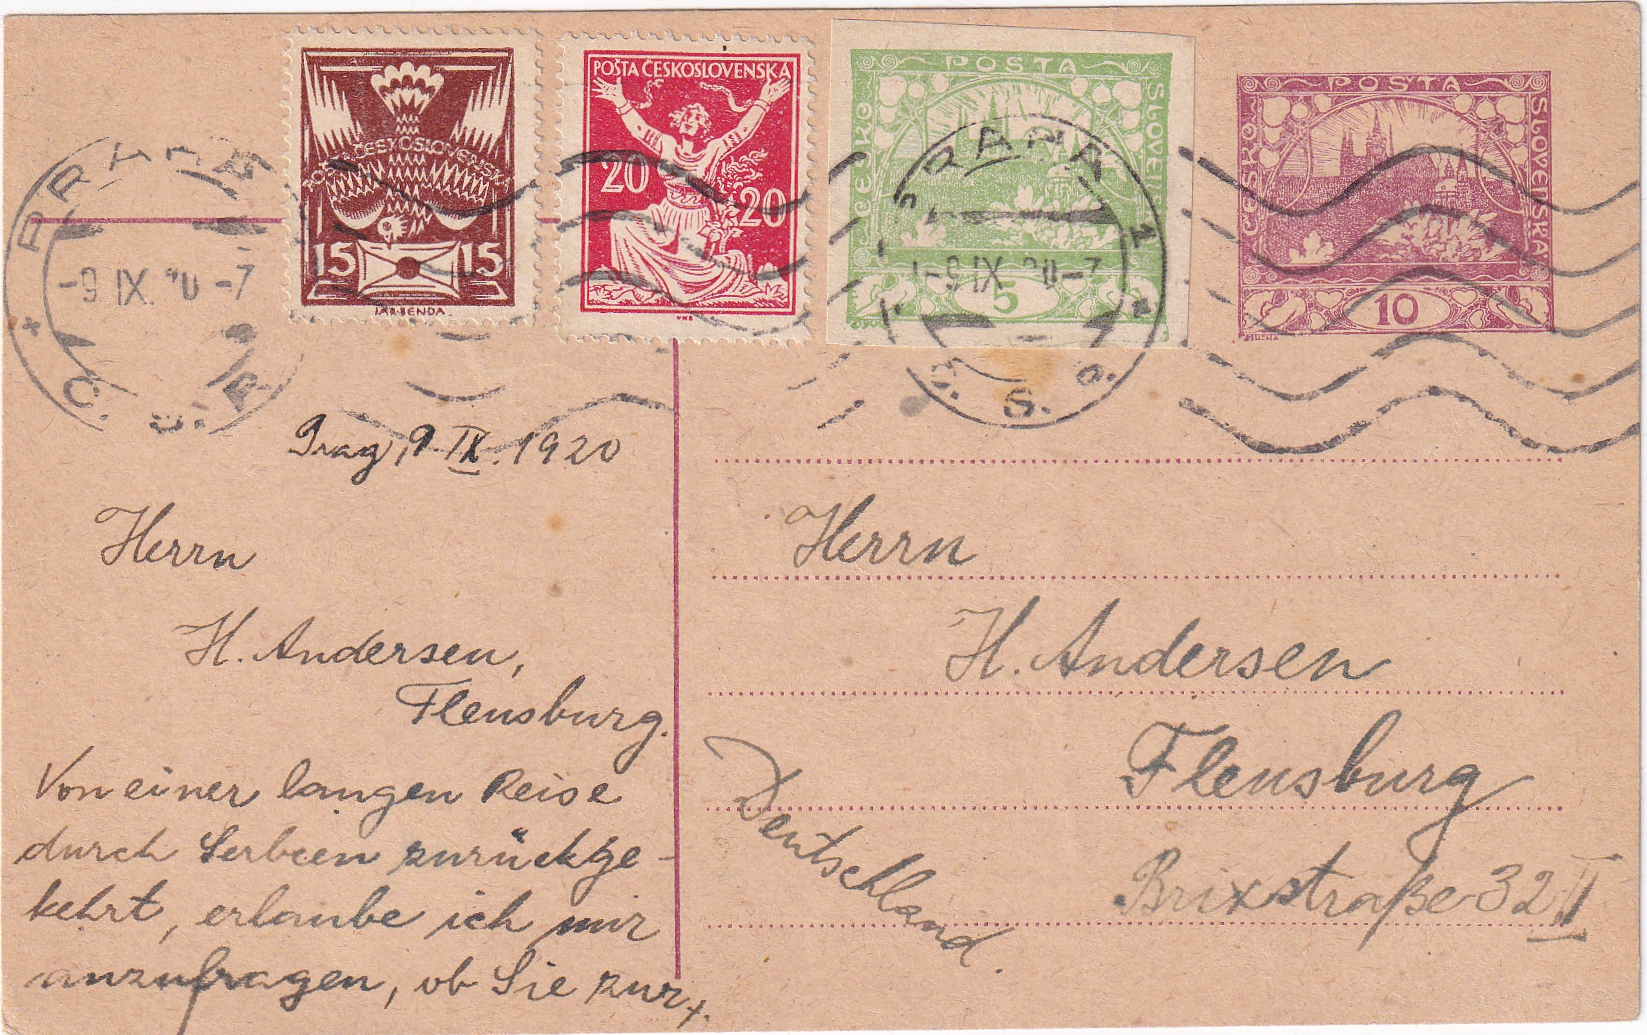 POŠTA ČESKOSLOVENSKÁ
15 15
JAR.BENDA.
POŠTA ČESKOSLOVENSKÁ
20 20
VHB
POŠTA
ČESKO SLOVENSKÁ
5
POŠTA
ČESKO SLOVENSKÁ
10
MUCHA
PRAHA
-9 IX. 20 -7
Č. S. P.
PRAHA 1
-9 IX. 20 -7
Č. S. P.
Prag, 9. IX. 1920
Herrn
H. Andersen,
Flensburg.
Von einer langen Reise
durch Serbien zurückge-
kehrt, erlaube ich mir
anzufragen, ob Sie zur
Herrn
H. Andersen
Flensburg
Brixstraße 32 II
Deutschland.